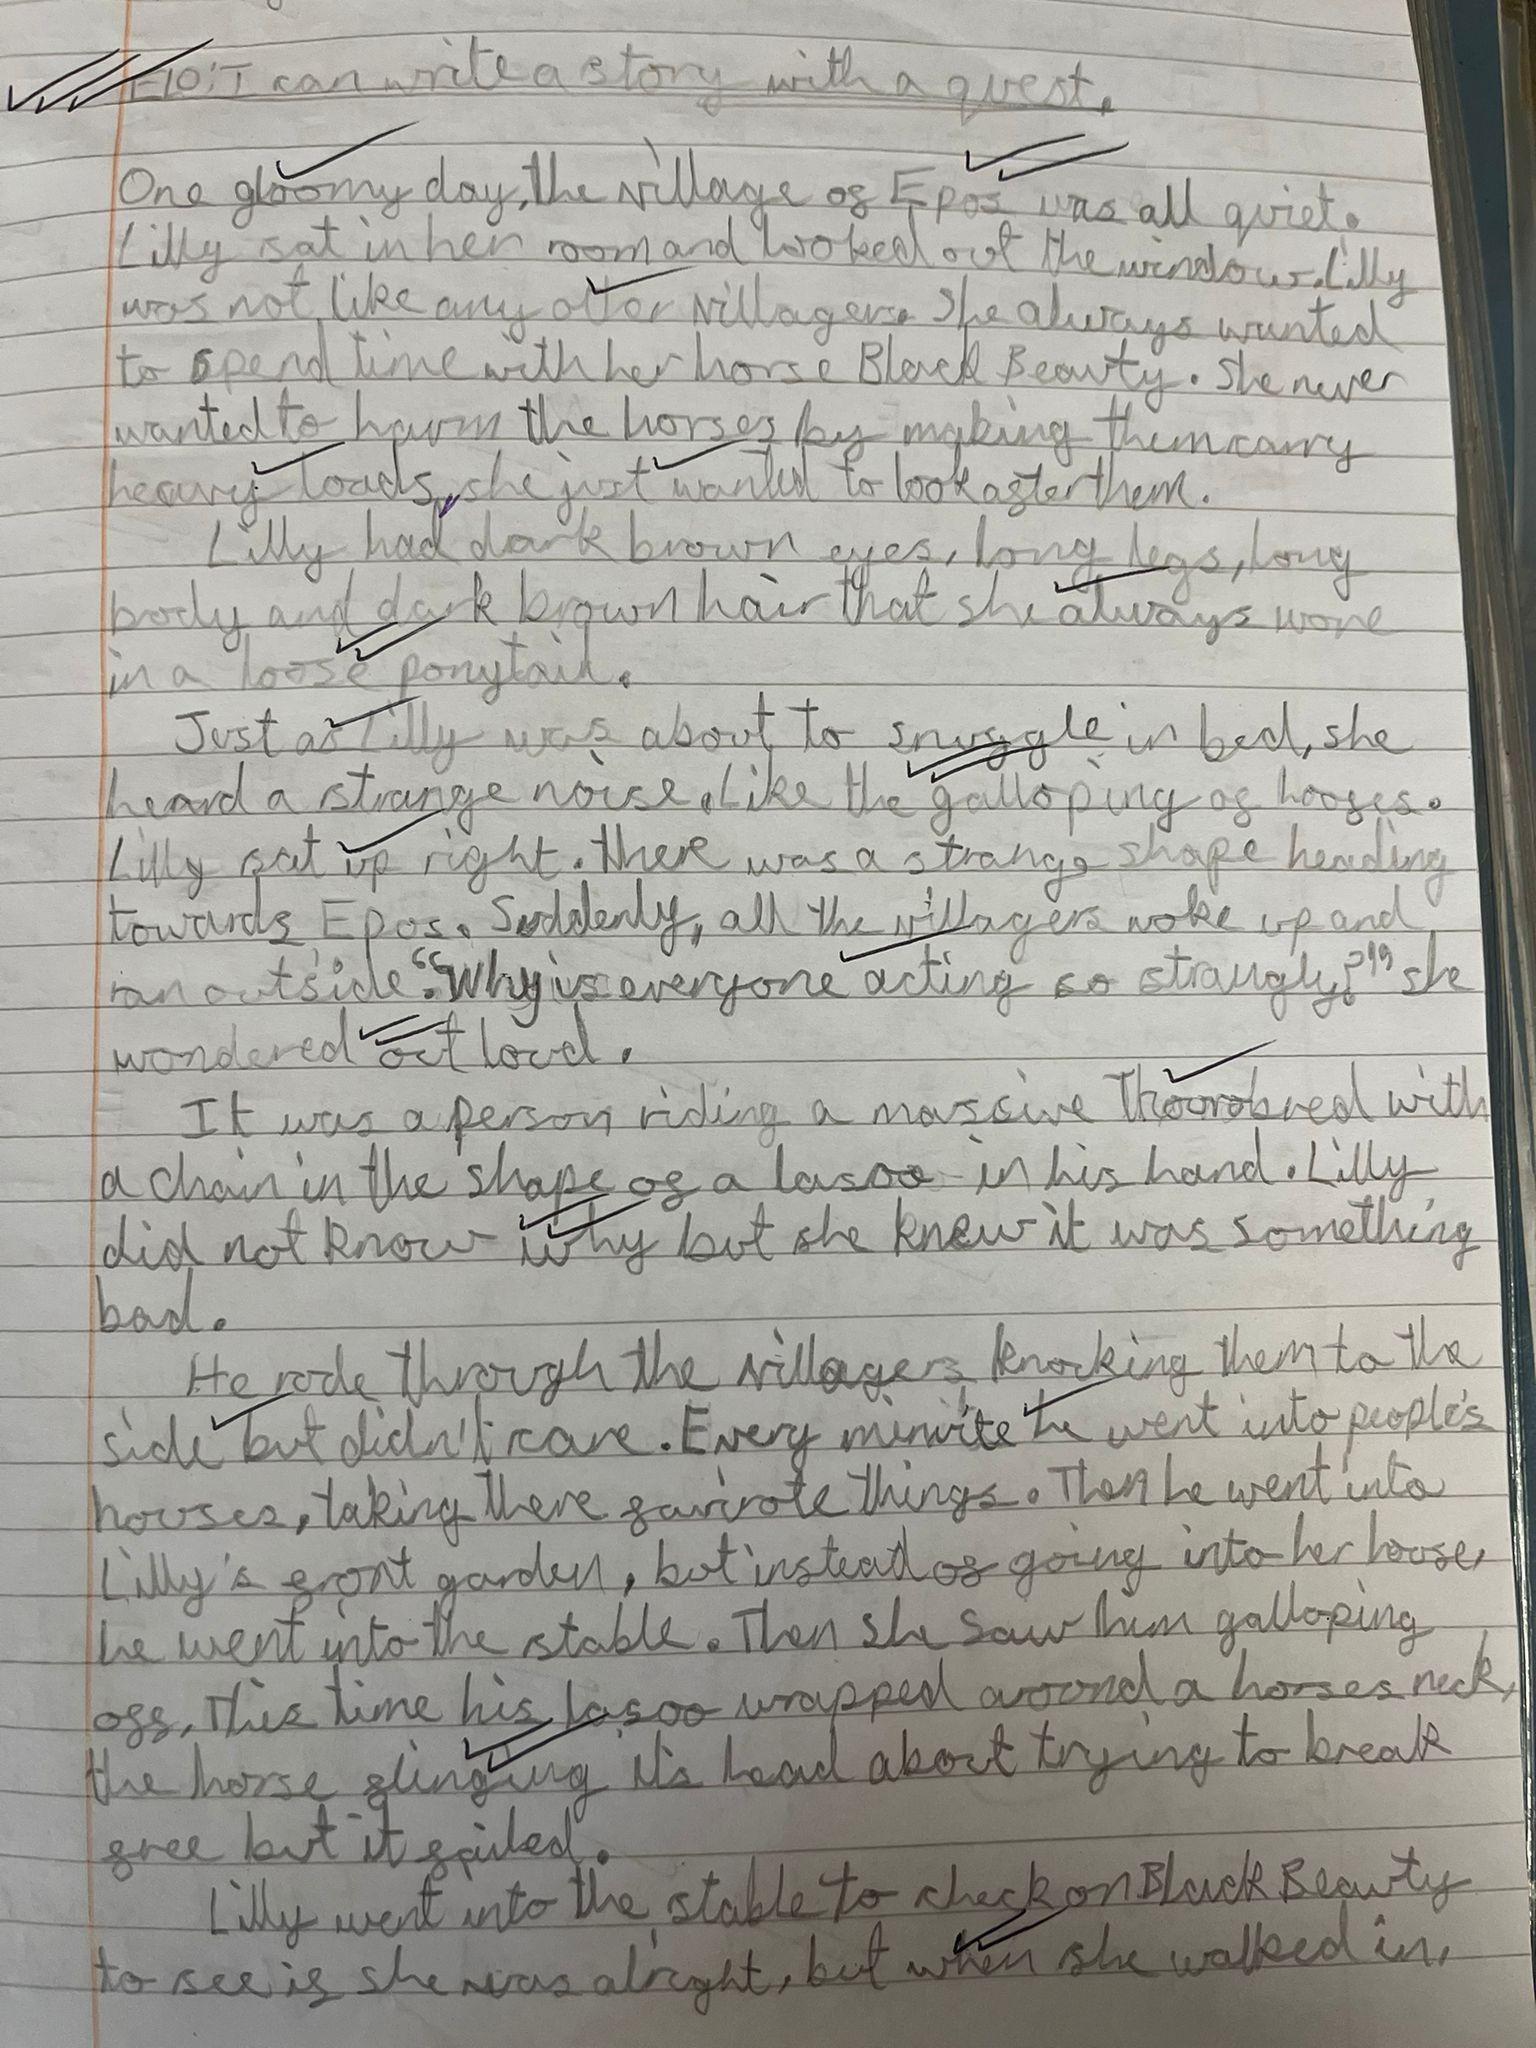 FLO: I can write a story with a quest.
One gloomy day, the village of Epos was all quiet.
Lilly sat in her room and looked out the window. Lilly
was not like any other villager. She always wanted
to spend time with her horse Black Beauty. She never
wanted to harm the horses by making them carry
heavy loads, she just wanted to look after them.
Lilly had dark brown eyes, long legs, long
body and dark brown hair that she always wore
in a loose ponytail.
Just as Lilly was about to snuggle in bed, she
heard a strange noise. Like the galloping of hooses.
Lilly sat up right. There was a strange shape heading
towards Epos. Suddenly, all the villagers woke up and
ran outside. "Why is everyone acting so straugly?" she
wondered out loud.
It was a person riding a massive Thoorobred with
a chain in the shape of a lasoo in his hand. Lilly
did not know why but she knew it was something
bad.
He rode through the villagers knocking them to the
side but didn't care. Every minite he went into people's
houses, taking there favirote things. Then he went into
Lilly's front garden, but instead of going into her house,
he went into the stable. Then she saw him galloping
off, this time his lasoo wrapped around a horses neck,
the horse flinging it's head about trying to break
free but it failed.
Lilly went into the stable to check on Black Beauty
to see if she was alright, but when she walked in,